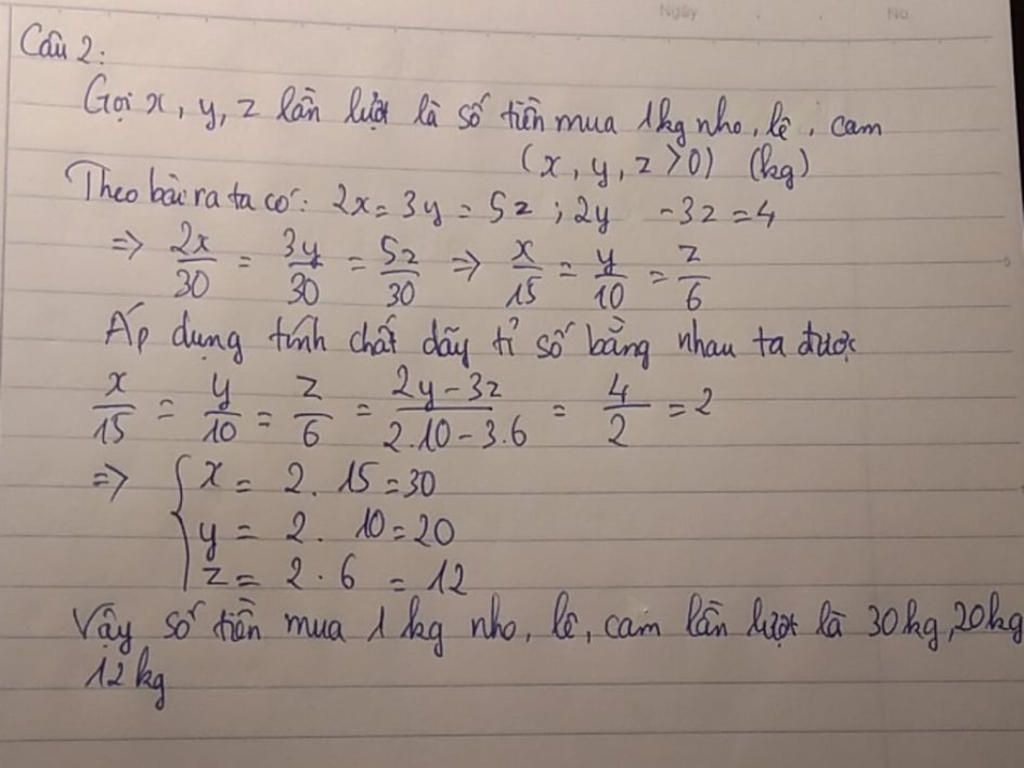 Ngày No.
Câu 2:
Gọi x, y, z lần lượt là số tiền mua 1kg nho, lê, cam
(x, y, z > 0) (kg)
Theo bài ra ta có: 2x = 3y = 5z ; 2y - 3z = 4
=> 2x/30 = 3y/30 = 5z/30 => x/15 = y/10 = z/6
Áp dụng tính chất dãy tỉ số bằng nhau ta được
x/15 = y/10 = z/6 = 2y - 3z/2.10 - 3.6 = 4/2 = 2
=> { x = 2. 15 = 30
y = 2. 10 = 20
z = 2. 6 = 12
Vậy số tiền mua 1 kg nho, lê, cam lần lượt là 30kg, 20kg
12kg